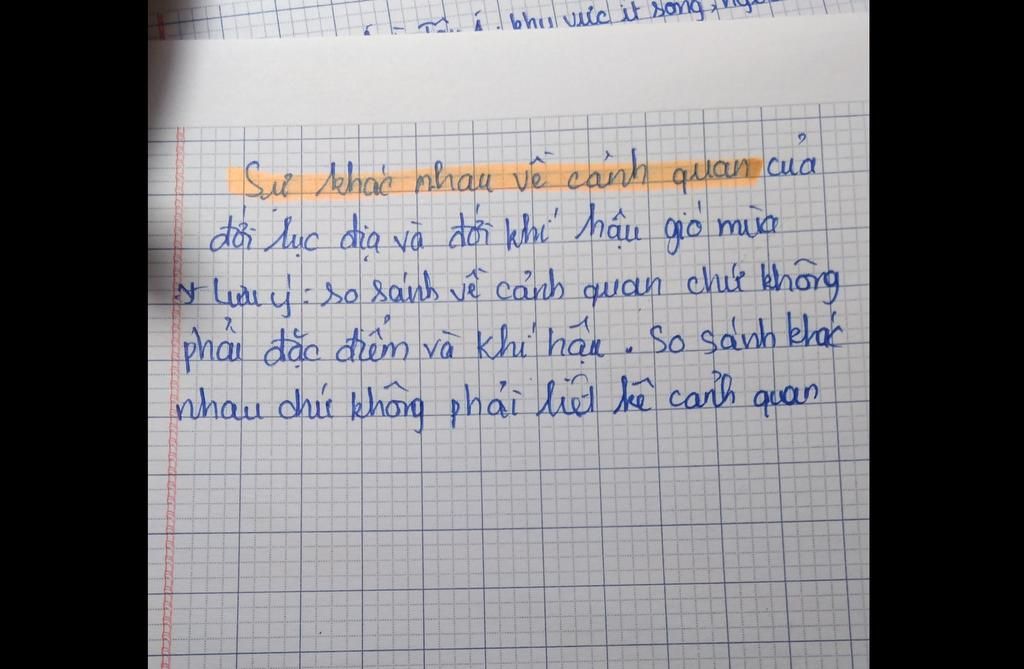 khu vực ít sông,
Sự khác nhau về cảnh quan của
đới lục địa và đới khí hậu gió mùa
* Lưu ý: so sánh về cảnh quan chứ không
phải đặc điểm và khí hậu. So sánh khác
nhau chứ không phải liệt kê cảnh quan